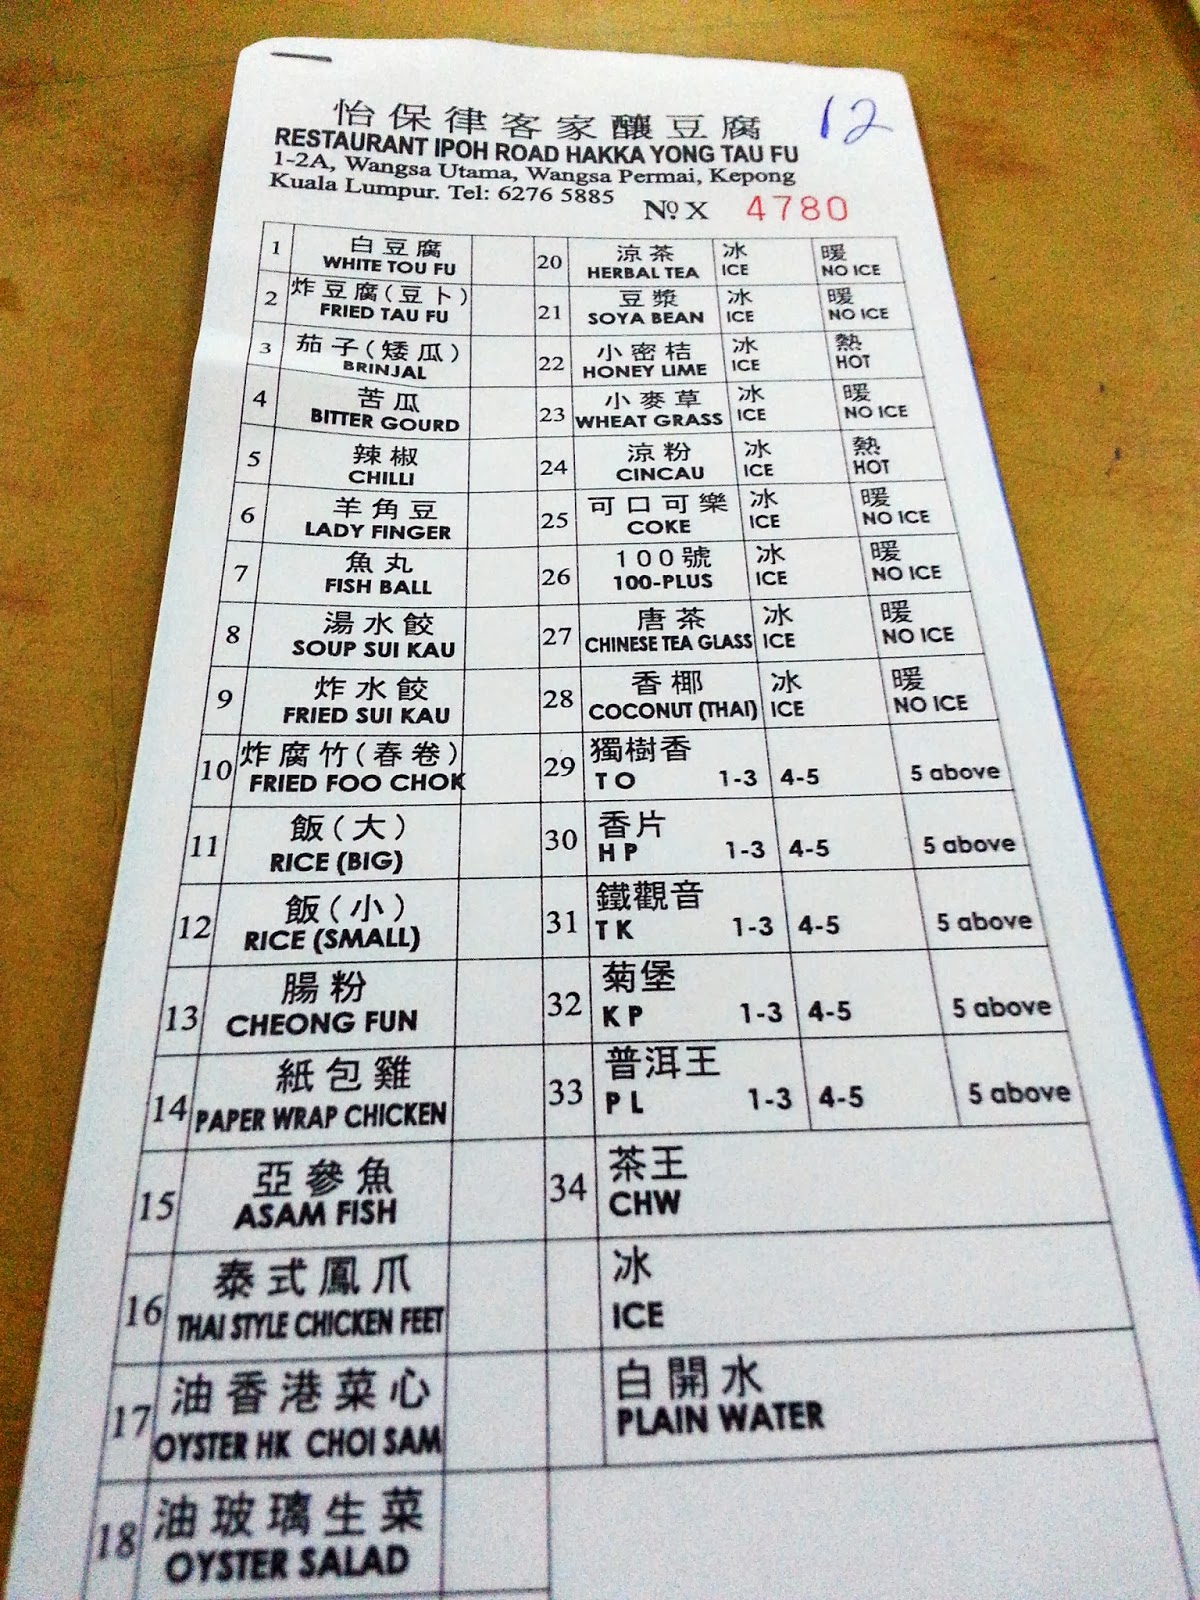 怡保律客家釀豆腐
12
RESTAURANT IPOH ROAD HAKKA YONG TAU FU
1-2A, Wangsa Utama, Wangsa Permai, Kepong
Kuala Lumpur. Tel: 6276 5885
Nº X 4780
1 白豆腐 WHITE TOU FU
2 炸豆腐(豆卜) FRIED TAU FU
3 茄子(矮瓜) BRINJAL
4 苦瓜 BITTER GOURD
5 辣椒 CHILLI
6 羊角豆 LADY FINGER
7 魚丸 FISH BALL
8 湯水餃 SOUP SUI KAU
9 炸水餃 FRIED SUI KAU
10 炸腐竹(春卷) FRIED FOO CHOK
11 飯(大) RICE (BIG)
12 飯(小) RICE (SMALL)
13 腸粉 CHEONG FUN
14 紙包雞 PAPER WRAP CHICKEN
15 亞參魚 ASAM FISH
16 泰式鳳爪 THAI STYLE CHICKEN FEET
17 油香港菜心 OYSTER HK CHOI SAM
18 油玻璃生菜 OYSTER SALAD
20 涼茶 HERBAL TEA 冰 ICE 暖 NO ICE
21 豆漿 SOYA BEAN 冰 ICE 暖 NO ICE
22 小密桔 HONEY LIME 冰 ICE 熱 HOT
23 小麥草 WHEAT GRASS 冰 ICE 暖 NO ICE
24 涼粉 CINCAU 冰 ICE 熱 HOT
25 可口可樂 COKE 冰 ICE 暖 NO ICE
26 100號 100-PLUS 冰 ICE 暖 NO ICE
27 唐茶 CHINESE TEA GLASS 冰 ICE 暖 NO ICE
28 香椰 COCONUT (THAI) 冰 ICE 暖 NO ICE
29 獨樹香 TO 1-3 4-5 5 above
30 香片 HP 1-3 4-5 5 above
31 鐵觀音 TK 1-3 4-5 5 above
32 菊堡 KP 1-3 4-5 5 above
33 普洱王 PL 1-3 4-5 5 above
34 茶王 CHW
冰 ICE
白開水 PLAIN WATER